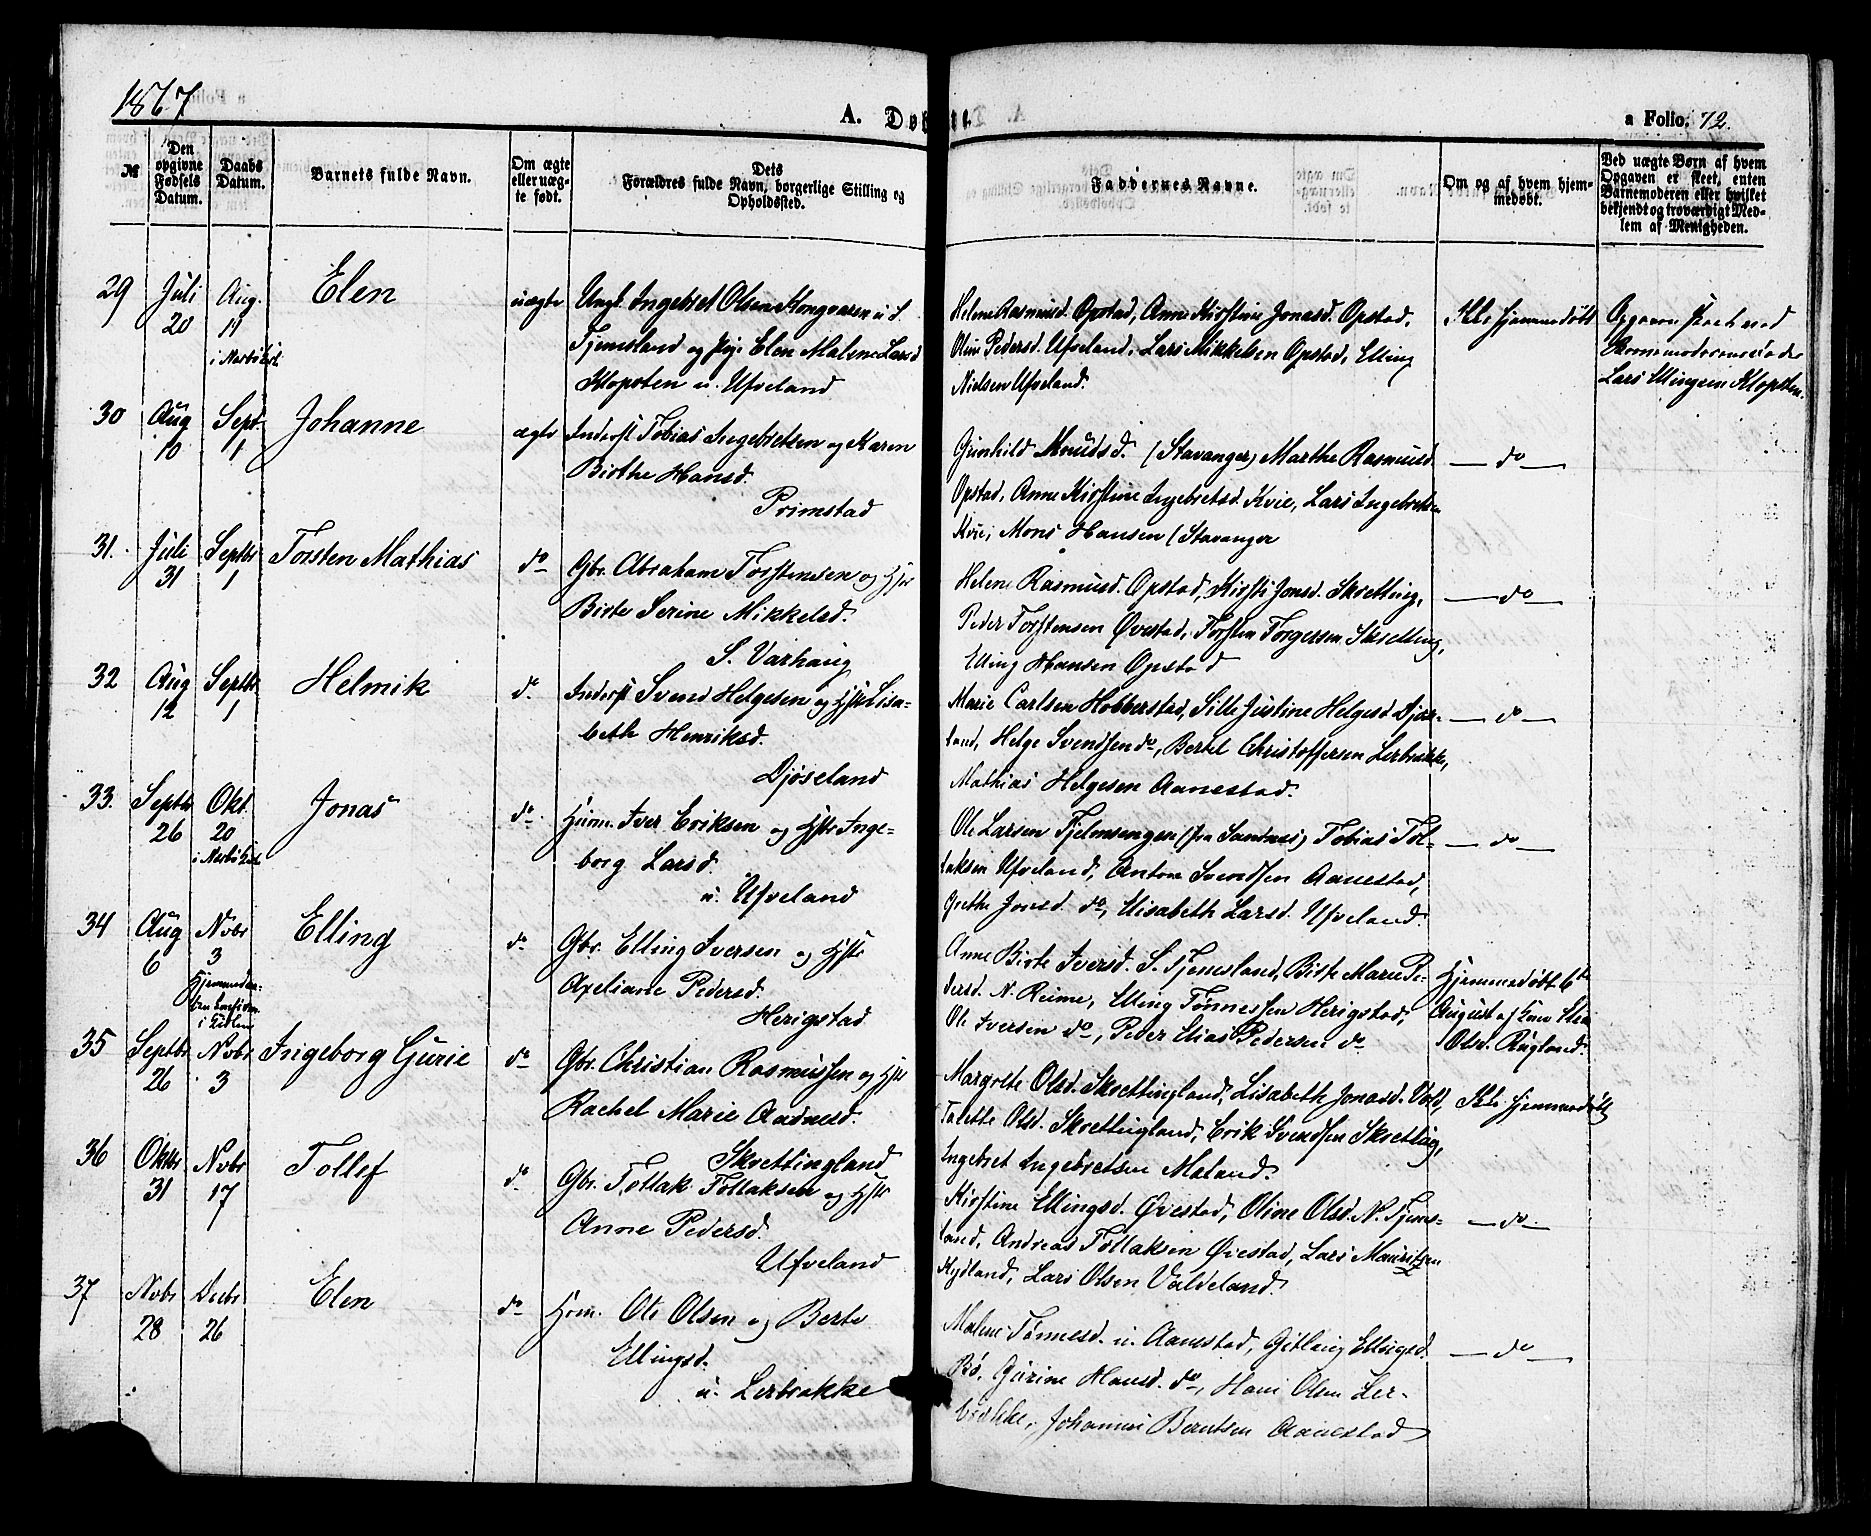 1867
A. Døbte.
a Folio. 72.
№
Den opgivne Fødsels Datum.
Daabs Datum.
Barnets fulde Navn.
Om ægte eller uægte født.
Dets Forældres fulde Navn, borgerlige Stilling og Opholdssted.
Faddernes Navne.
Om og af hvem hjemmedøbt.
Ved uægte Børn af hvem Opgaven er skeet, enten Barnemoderen eller hvilket bekjendt og troværdigt Medlem af Menigheden.
29 Juli 20 Aug. 11 Elen uægte
Ungk. Ingebret Olsen S.
Fjemesland og Pige Elen Malene Larsd
Klopsten u. Ufveland
Helene Rasmusd. Opstad, Anne Kirstine Jonasd. Opstad,
Oline Pedersd. Ufveland, Lars Mikkelsen Opstad, Elling
Nielsen Ufveland.
Ikke hjemmedøbt
Lars Klopsten
30 Aug 10 Sept. 1 Johanne ægte
Inderst Tobias Ingebretsen og Karen
Birthe Hansd.
Primstad
Gunhild Knudsd. (Stavanger) Marthe Rasmusd.
Opstad, Anne Kirstine Ingebretsd Kvie, Lars Ingebretsen
Kvie, Mons Hansen (Stavanger
— do —
31. Juli 31 Septbr 1 Torsten Mathias do
Gbr. Abraham Torstensen og Hstr
Birte Serine Mikkelsd.
S. Varhaug
Helene Rasmusd. Opstad, Kirsti Jonsd. Skretting,
Peder Torstensen Øvestad, Torsten Torgersen Skretting,
Elling Hansen Opstad
— do —
32 Aug 12 Septbr 1 Helmik do
Inderst Svend Helgesen og Hstr Lisa-
beth Henriksd.
Djøseland
Marie Carlsen Hobberstad, Sille Justine Helgesd Djøse-
land, Helge Svendsen do, Bertel Christoffersen Lerbrække,
Mathias Helgesen Aanestad.
— do —
33. Septbr 26 Okt. 20 Jonas do
Huum. Iver Eriksen og Hstr Inge-
borg Larsd.
u. Ufveland
Ole Larsen (fra Sandnes) Tobias Tol-
laksen Ufveland, Anton Svendsen Aanestad,
Grethe Jonsd. do, Elisabeth Larsd. Ufveland.
— do —
34 Aug 6 Novbr 3 Elling do
Gbr. Elling Iversen og Hstr
Axeliane Pedersd.
Herigstad
Anne Birte Iversd. S. Fjemesland, Birte Marie Pe-
dersd. N. Reime, Elling Tønnessen Herigstad,
Ole Iversen do, Peder Elias Pedersen do
Hjemmedøbt 6te
August af
Olsd. Rugland.
35 Septbr 26 Novbr 3 Ingeborg Gurie do
Gbr. Christian Rasmussen og Hstr
Rachel Marie Aadnesd.
Skrettingland
Margrete Olsd. Skrettingland, Lisabeth Jonasd.
Talette Olsd. Skrettingland, Erik Svendsen Skretting,
Ingebret Ingebretsen Maland.
Ikke hjemmedøbt
36 Oktbr 31 Novbr 17 Tollef do
Gbr. Tollak Tollaksen og Hstr
Anne Pedersd.
Ufveland
Kirstine Ellingsd. Øvestad, Oline Olsd. N. Fjemes-
land, Andreas Tollaksen Øvestad, Lars Mauritzen
Hydland, Lars Olsen Valdeland.
— do —
37 Novbr 28 Decbr 26 Elen do
Huum. Ole Olsen og Berte
Ellingsd.
u. Lerbrække
Malene Tønnesd. u. Aanestad, Gitlaug Ellingsd.
Bø, Gurine Hansd. do, Hans Olsen Ler-
brække, Johannes Berntsen Aanestad
— do —